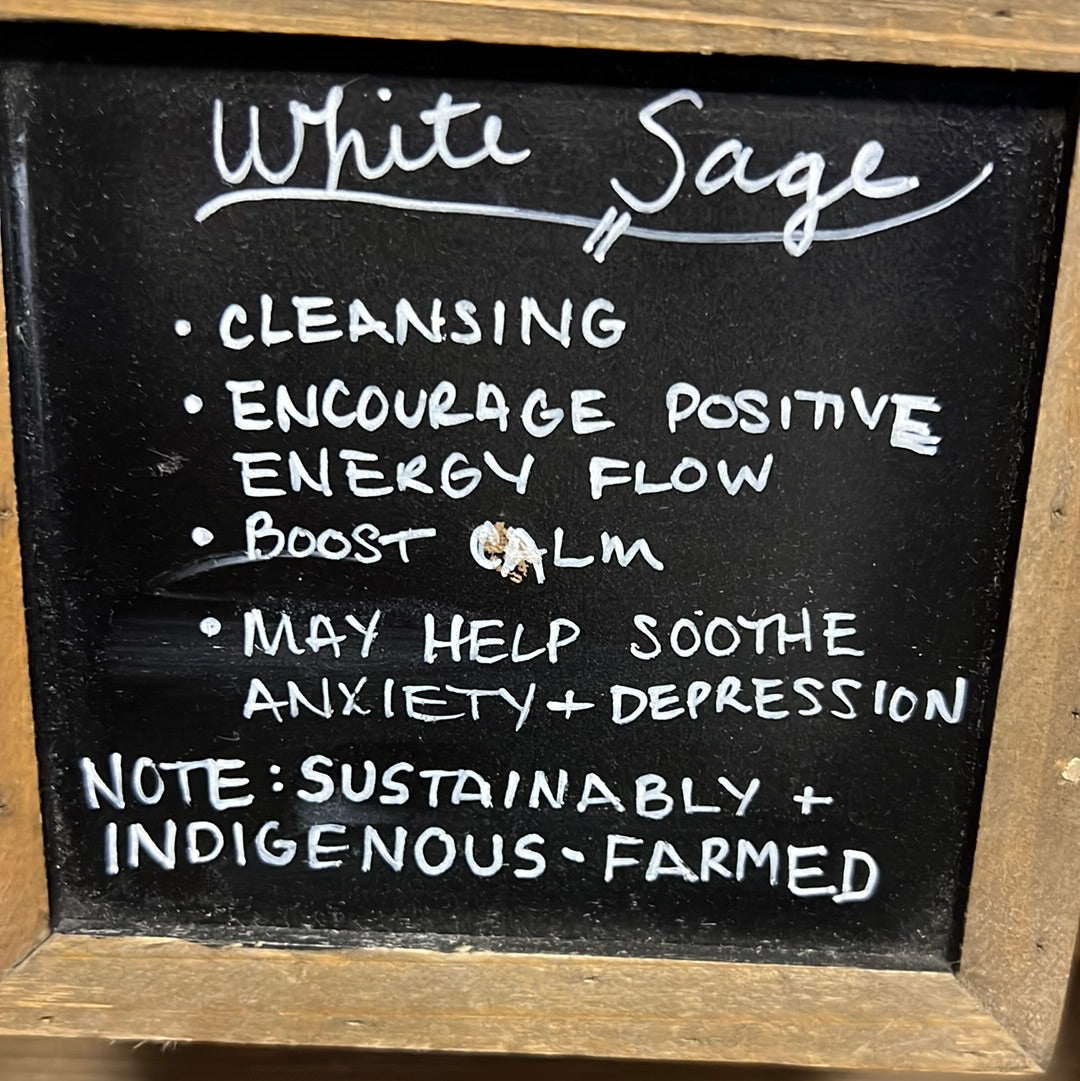 White Sage
• CLEANSING
• ENCOURAGE POSITIVE
ENERGY FLOW
• BOOST CALM
• MAY HELP SOOTHE
ANXIETY + DEPRESSION
NOTE: SUSTAINABLY +
INDIGENOUS-FARMED